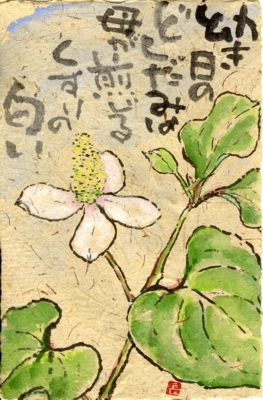 幼き
日の
どくだみは
母が煎じる
くすりの
匂い